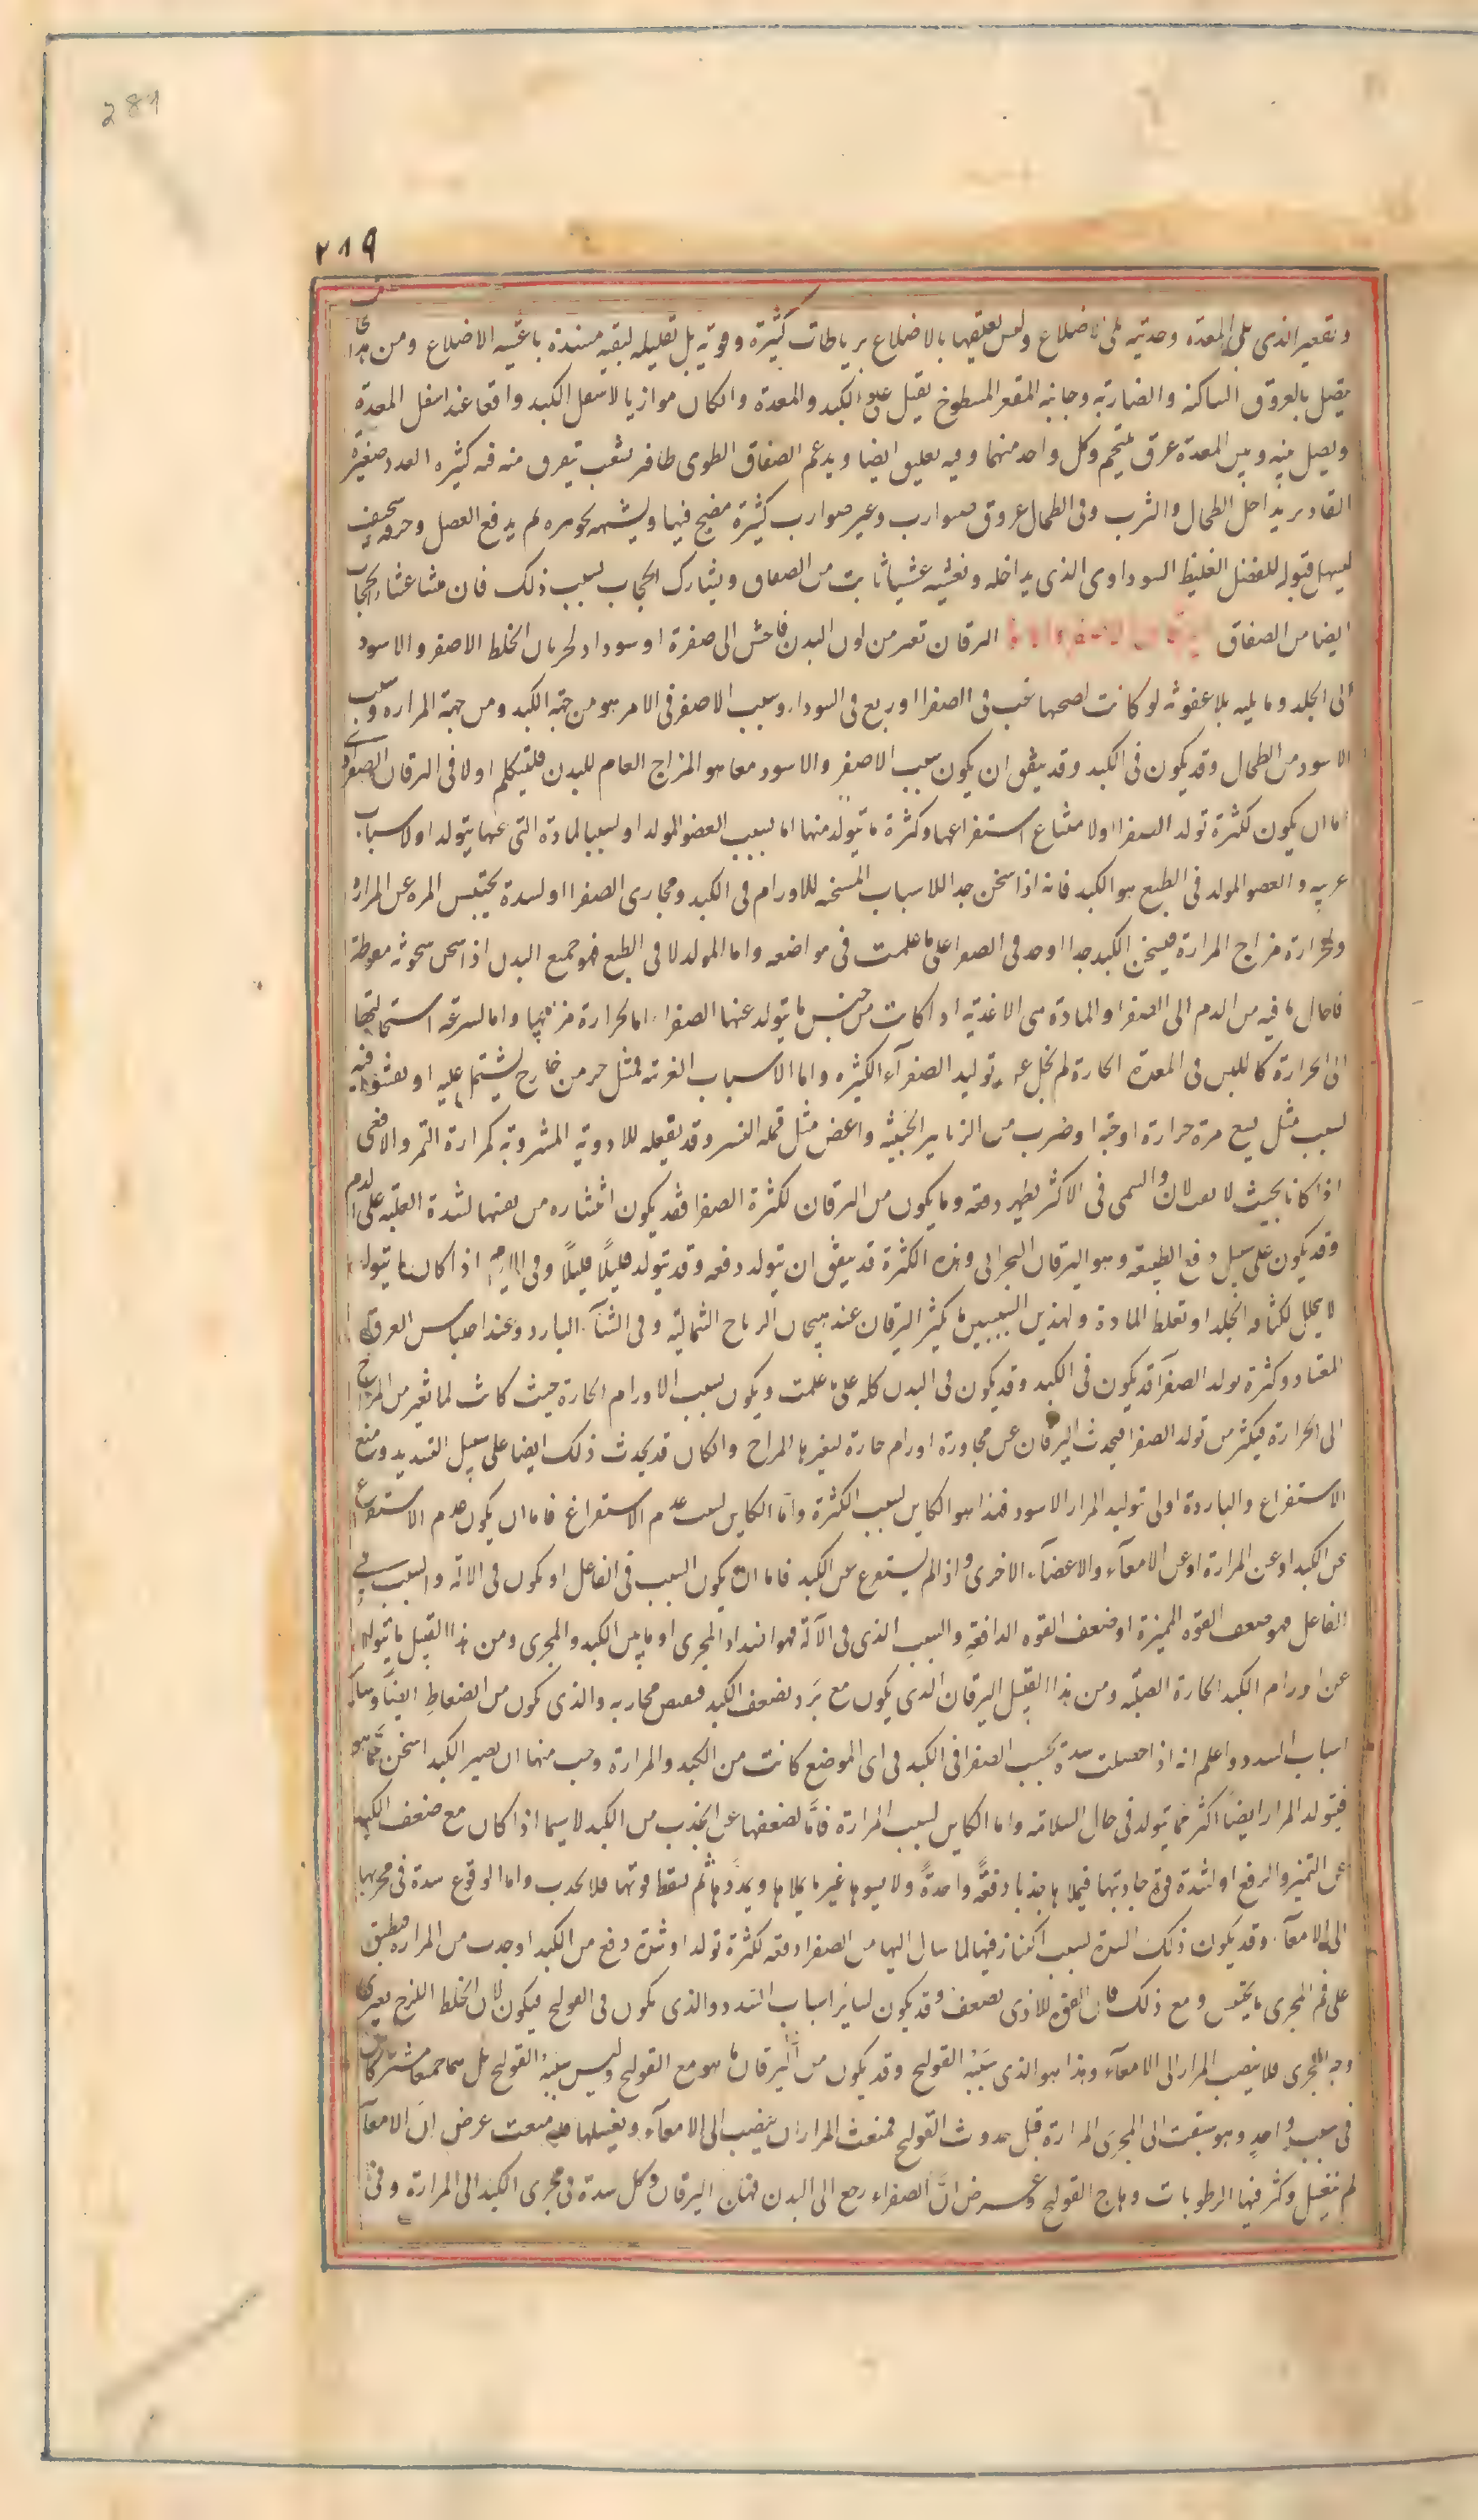 281
٢١٩
وتقعير الذى يلى المعدة وحدبته تلى الاضلاع وليس تعلقها بالاضلاع برباطات كثيرة وقوية بل بقليلة ليفية مسندة باغشية الاضلاع ومن هذا
يتصل بالعروق الساكنة والضاربة وجانبه المقعر المسطوح يقبل على الكبد والمعدة وان كان موازيا لاسفل الكبد واقعا عند اسفل المعدة
ويصل بينه وبين المعدة عرق يلتحم وكل واحد منهما وفيه تعليق ايضا ويدعم الصفاق المطوى طافر بشعب تتفرق منه فيه كثيرة العدد صغيرة
القادير يداخل الطحال والثرب وفى الطحال عروق ضوارب وغير ضوارب كثيرة ينضج فيها ويشبهه بجوهره ثم يدفع الفضل وجرمه سخيف
ليسهل قبوله للفضل الغليظ السوداوى الذى يداخله ونغشيه غشا نابت من الصفاق ويشارك الحجاب بسبب ذلك فان منشا غشاء الحجاب
ايضا من الصفاق اليرقان تغير من لون البدن فاحش الى صفرة او سواد لجريان الخلط الاصفر والاسود
الى الجلد وما يليه بلا عفونة لو كانت لصحبها غب فى الصفرا او ربع فى السوداء وسبب الاصفر فى الامر هو من جهة الكبد ومن جهة المراره وسبب
الاسود من الطحال وقد يكون فى الكبد وقد يتفق ان يكون سبب الاصفر والاسود معا هو المزاج العام للبدن فلنتكلم اولا فى اليرقان الصفراوى
اما ان يكون لكثرة تولد الصفرا او لامتناع استفراغها وكثرة ما يتولد منها اما بسبب العضو المولد او بسبب المادة التى عنها يتولد او لاسباب
غريبه والعضو المولد فى الطبع هو الكبد فانه اذا سخن جدا للاسباب المسخنه للاورام فى الكبد ومجارى الصفرا او لسدة يحتبس المره عن المرارة
ولحرارة مزاج المرارة فيسخن الكبد جدا اوحد فى الصفرا على ما علمت فى مواضعه واما المولد لا فى الطبع فهو جميع البدن اذا سخن سخونة مفرطة
فاحال ما فيه من الدم الى الصفرا والمادة هى الاغذية اذا كانت من جنس ما يتولد عنها الصفراء اما لحرارة مزاجها واما لسرعة استحالتها
الى الحرارة كاللبن فى المعدة الحارة لم يخل عن توليد الصفرآء الكثيره واما الاسباب الغريبة فمثل حر من خارج يشتمل عليه او يفشو فيه
بسبب مثل لسع مرة حرارة او حية او ضرب من الزنابير الخبيثه واعض مثل قملة النسر وقد يفعله للادوية المشروبة كمرارة النمر والافعى
اذا كانا بحيث لا يقتلان والسمى فى الاكثر يظهر دفعة وما يكون من اليرقان لكثرة الصفرا فقد يكون انتشاره من نفسها لشدة الغلبة على الدم
وقد يكون على سبيل دفع الطبيعة وهو اليرقان البحرانى وهذه الكثرة قد يتفق ان يتولد دفعه وقد يتولد قليلاً قليلاً وفى الايام اذا كان ما يتولد
لا يحلل لكثافة الجلد او لغلظ المادة ولهذين السببين ما يكثر اليرقان عند هيجان الرياح الشمالية وفى الشتآء البارد وعند احتباس العرق
المعتاد وكثرة تولد الصفرآ قد يكون فى الكبد وقد يكون فى البدن كله على ما علمت ويكون بسبب الاورام الحارة حيث كانت لما تغير من المزاج
الى الحرارة فيكثر من تولد الصفرا فيحدث اليرقان عن مجاورة اورام حارة لتغيرها المزاج وان كان قد يحدث ذلك ايضا على سبيل التسديد ومنع
الاستفراغ والباردة اولى توليد المرار الاسود فهذا هو الكاين لسبب الكثرة واما الكاين لسبب عدم الاستفراغ فاما ان يكون عدم الاستفراغ
عن الكبد او عن المرارة او عن الامعآء والاعضآء الاخرى واذا لم يستفرغ عن الكبد فاما ان يكون السبب فى الفاعل او يكون فى الالة والسبب فى
الفاعل هو ضعف القوة المميزة او ضعف القوه الدافعة والسبب الذى فى الآلة فهو انسداد المجرى او ما بين الكبد والمجرى ومن هذا القبيل ما يتولد
عن اورام الكبد الحارة الصلبة ومن هذا القبيل اليرقان الذى يكون مع بَرد يضعف الكبد فيقبض مجاريه والذى يكون من انضغاطِ ايضاً وساير
اسباب السدد واعلم انه اذا حصلت سدة بحبس الصفرا فى الكبد فى اى الموضع كانت من الكبد والمرارة وجب منها ان يصير الكبد اسخن مما هو
فيتولد المرار ايضاً اكثر مما يتولد فى حال السلامة واما الكاين بسبب المرارة فاما لضعفها عن الجذب من الكبد لا سيما اذا كان مع ضعف الكبد
عن التميز والدفع او لشدة قوة جاذبتها فيملاها جذبا دفعةً واحدةً ولا يسوها غير ما يملاها ويمددها ثم يسقط قوتها فلا يجذب واما لوقوع سدة فى مجريها
الى الامعآء وقد يكون ذلك السدة بسبب اكتناز فيها لما سال اليها من الصفرا دفعه لكثرة تولد او شدة دفع من الكبد او جذب من المرارة فينطبق
على فم المجرى ما يحتبس ومع ذلك فان القوة للاذى تضعف وقد يكون لساير اسباب السدد والذى يكون فى القولنج فيكون لان الخلط اللزج يغرى
وجه المجرى فلا ينصب المرار الى الامعآء وهذا هو الذى سَبَبُه القولنج وقد يكون من اليرقان ما هو مع القولنج وليس سَبَبُه القولنج بل هما جميعا مشتركان
فى سببٍ واحدٍ وهو سبقت الى المجرى المرارة قبل حدوث القولنج فمنعت المرار ان ينصب الى الامعآء ويغسلها فلما منعت عرض ان الامعآء
لم تغتسل وكثر فيها الرطوبات وهاج القولنج وعرض انَّ الصفراء رجع الى البدن فهاج اليرقان وكل سدة فى مجرى الكبد الى المرارة وفى